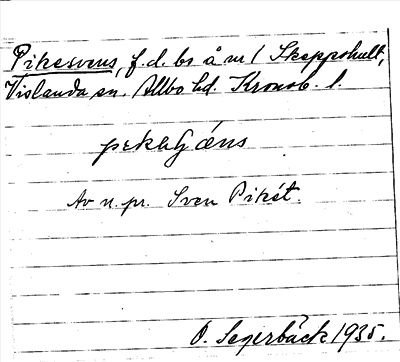 Pikesvens, f.d. bs å m/ Skeppshult,
Vislanda sn. Allbo hd. Kronob. l.
Av n. pr. Sven Pikét.
O. Segerbäck 1935.